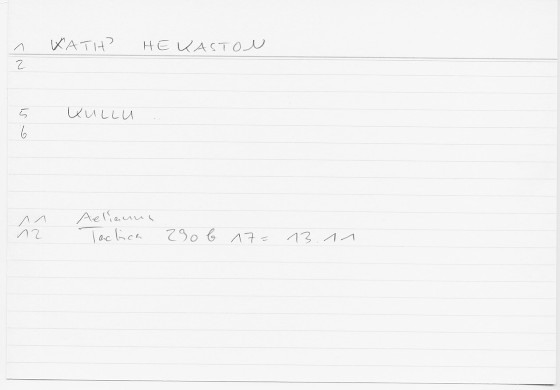 1 KATH' HEKASTON
2
5 KULLU
6
11 Aelianus
12 Tactica 290 b 17 = 13 11